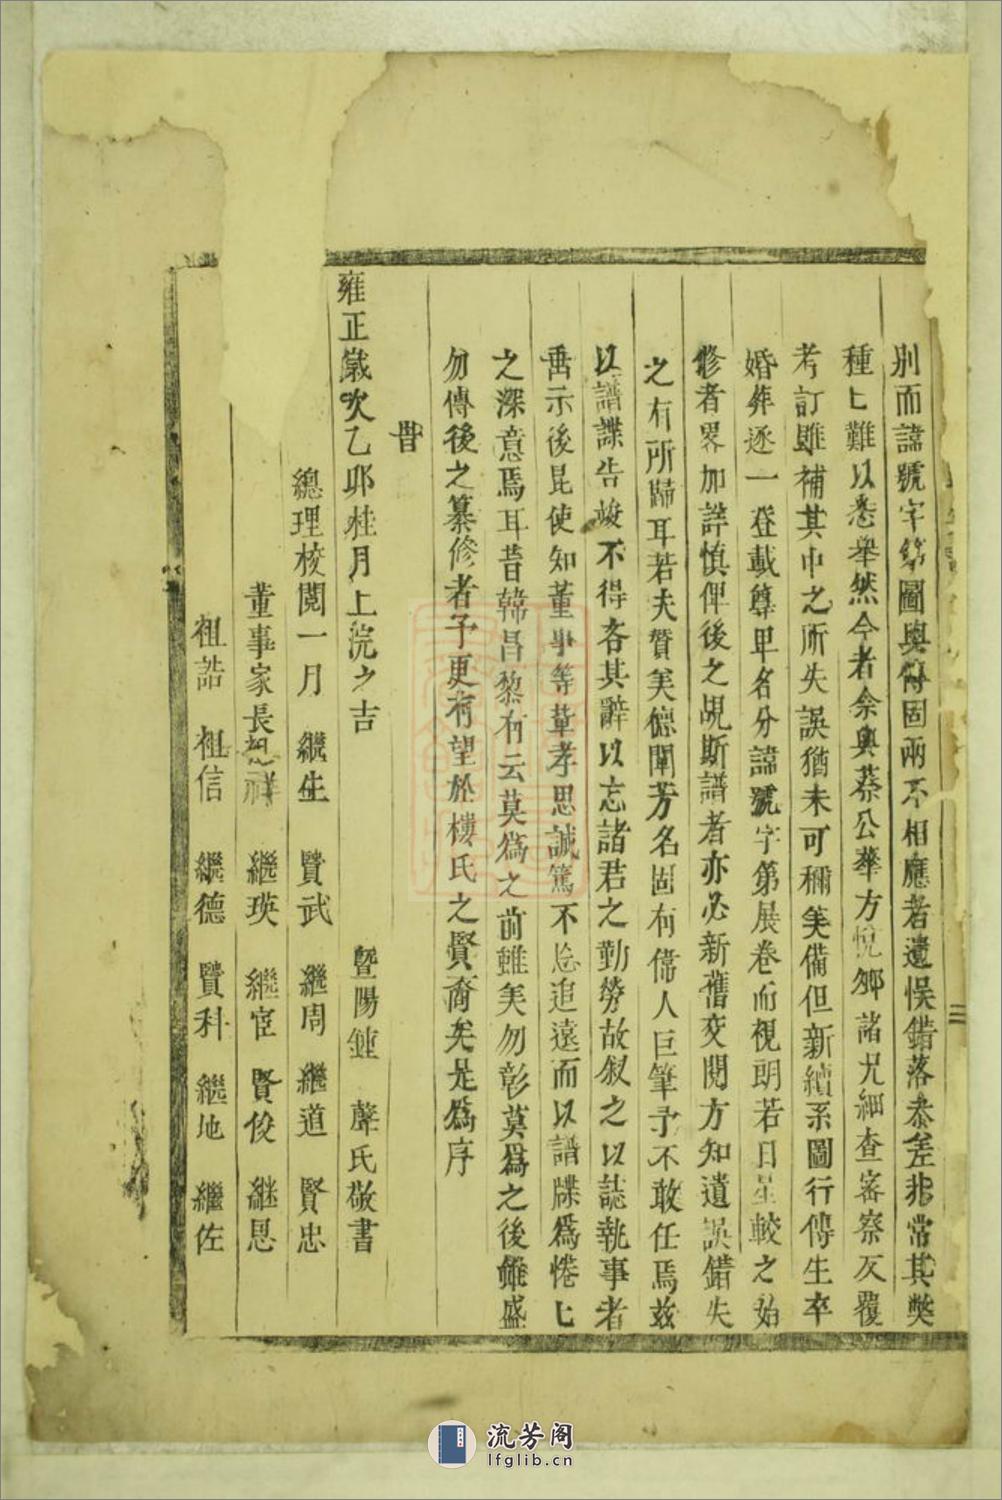 別而諱號字第圖與傳固兩不相應者遺悞錯落叅差非常其獘
種匕難以悉舉然今者余與蔡公華方悅鄉諸兄細查審察反覆
考訂雖補其中之所失誤猶未可稱美備但新續系圖行傳生卒
婚葬逐一登載尊卑名分諱號字第展卷而視朗若日星較之始
修者畧加詳慎俾後之覘斯譜者亦必新舊交閱方知遺誤錯失
之有所歸耳若夫贊美德闡芳名固有偉人巨筆予不敢任焉兹
以譜諜告竣不得吝其辭以忘諸君之勤勞故叙之以誌執事者
垂示後昆使知董事等輩孝思誠篤不忘追遠而以譜牒爲惓匕
之深意焉耳昔韓昌黎有云莫爲之前雖美勿彰莫爲之後雖盛
勿傳後之纂修者予更有望於樓氏之賢裔矣是爲序
旹
雍正歲次乙卯桂月上浣之吉 暨陽鍾 聲氏敬書
總理校閱一月 繼生 賢武 繼周 繼道 賢忠
董事家長 祥 繼瑛 繼宦 賢俊 継思
祖誥 祖信 繼德 賢科 繼地 繼佐
流芳阁
lfglib.cn